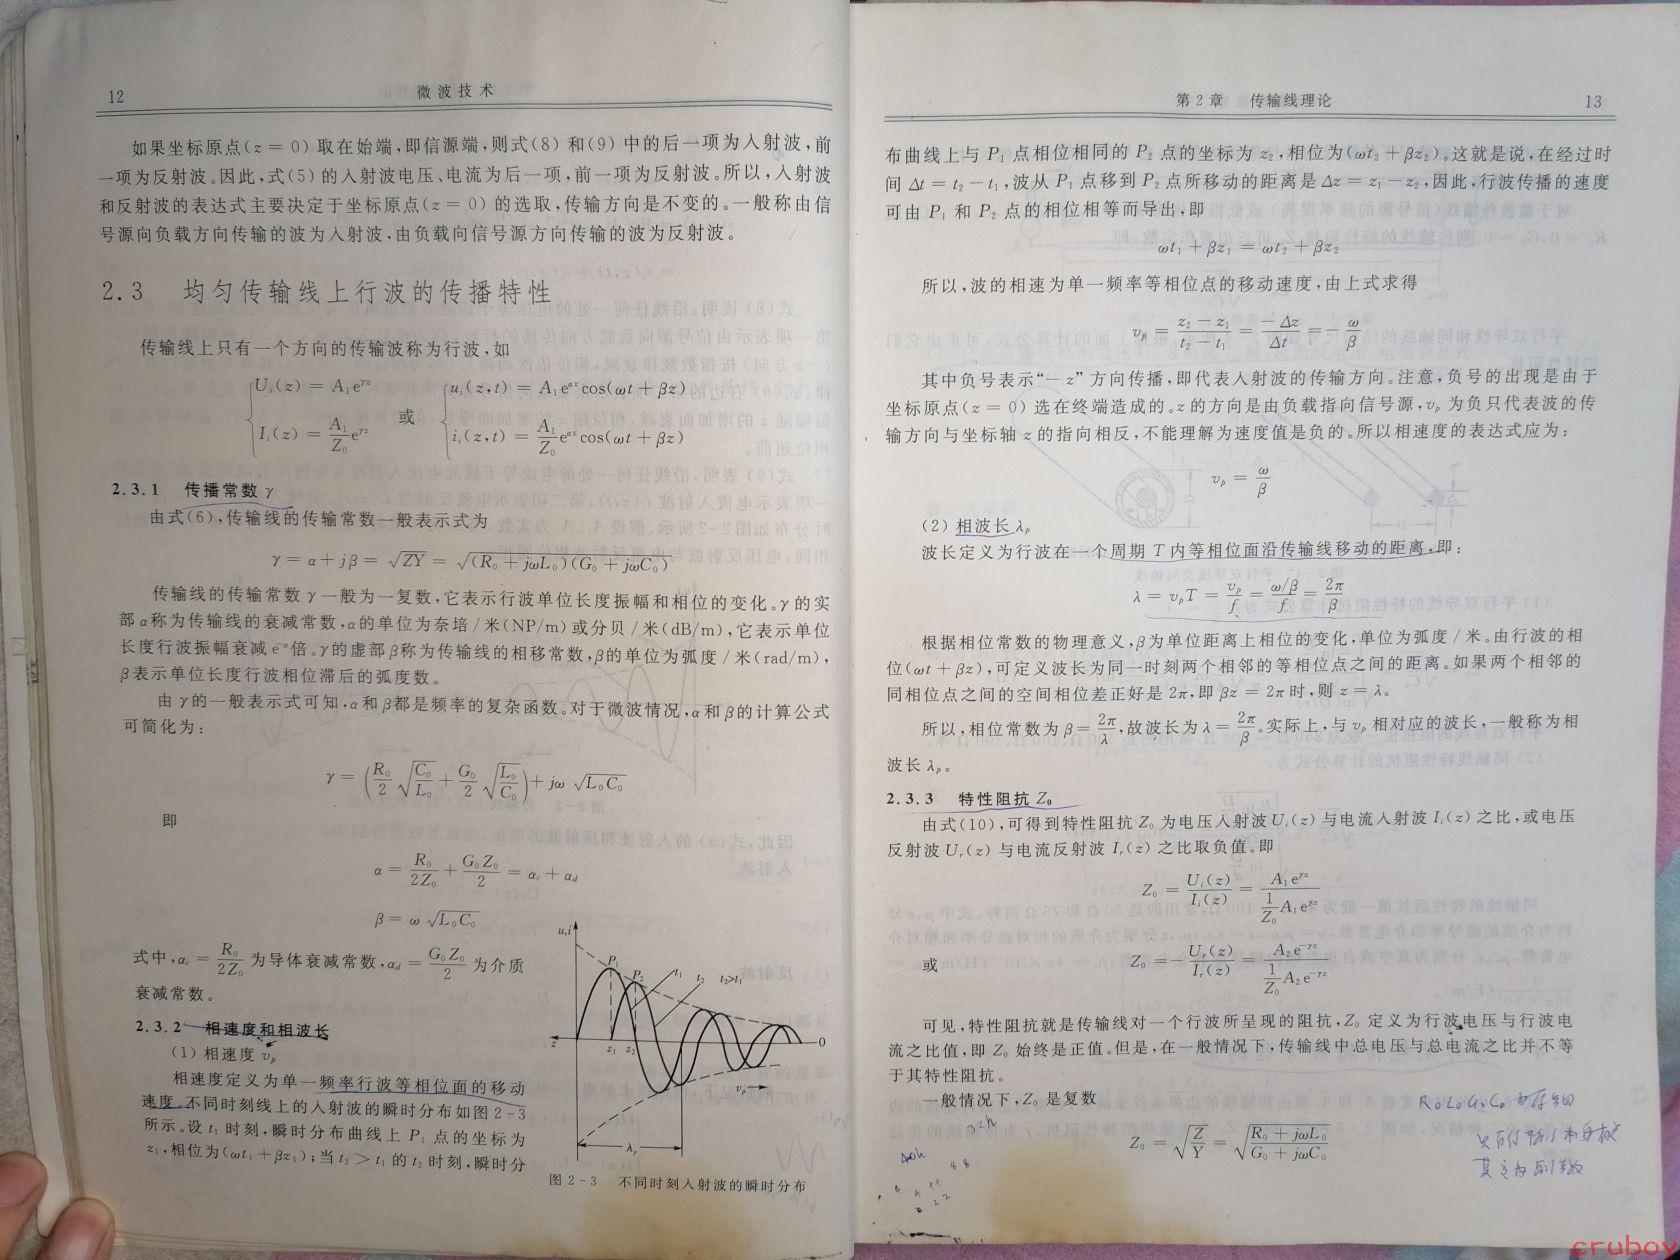 12
微波技术
如果坐标原点(z = 0) 取在始端,即信源端,则式(8) 和(9) 中的后一项为入射波,前
一项为反射波。因此,式(5) 的入射波电压、电流为后一项,前一项为反射波。所以,入射波
和反射波的表达式主要决定于坐标原点(z = 0) 的选取,传输方向是不变的。一般称由信
号源向负载方向传输的波为入射波,由负载向信号源方向传输的波为反射波。
2.3 均匀传输线上行波的传播特性
传输线上只有一个方向的传输波称为行波,如
{Uᵢ(z) = A₁e^{γz} 或 {uᵢ(z,t) = A₁e^{αz}cos(ωt + βz)
Iᵢ(z) = A₁/Z₀ e^{γz} iᵢ(z,t) = A₁/Z₀ e^{αz}cos(ωt + βz)
2.3.1 传播常数 γ
由式(6),传输线的传输常数一般表示式为
γ = α + jβ = √(ZY) = √((R₀ + jωL₀)(G₀ + jωC₀))
传输线的传输常数 γ 一般为一复数,它表示行波单位长度振幅和相位的变化。γ 的实
部 α 称为传输线的衰减常数,α 的单位为奈培/米(NP/m) 或分贝/米(dB/m),它表示单位
长度行波振幅衰减 e^{-α} 倍。γ 的虚部 β 称为传输线的相移常数,β 的单位为弧度/米(rad/m),
β 表示单位长度行波相位滞后的弧度数。
由 γ 的一般表示式可知,α 和 β 都是频率的复杂函数。对于微波情况,α 和 β 的计算公式
可简化为:
γ = (R₀/2 √(C₀/L₀) + G₀/2 √(L₀/C₀)) + jω √(L₀C₀)
即
α = R₀/2Z₀ + G₀Z₀/2 = α_c + α_d
β = ω √(L₀C₀)
式中,α_c = R₀/2Z₀ 为导体衰减常数,α_d = G₀Z₀/2 为介质
衰减常数。
2.3.2 相速度和相波长
(1) 相速度 v_p
相速度定义为单一频率行波等相位面的移动
速度。不同时刻线上的入射波的瞬时分布如图 2-3
所示。设 t₁ 时刻,瞬时分布曲线上 P₁ 点的坐标为
z₁,相位为(ωt₁ + βz₁);当 t₂ > t₁ 的 t₂ 时刻,瞬时分
u,i
P₁ P₂ t₁ t₂ t₂>t₁
z z₁ z₂ 0
v_p
λ_p
图 2-3 不同时刻入射波的瞬时分布
第 2 章 传输线理论
13
布曲线上与 P₁ 点相位相同的 P₂ 点的坐标为 z₂,相位为(ωt₂ + βz₂)。这就是说,在经过时
间 Δt = t₂ − t₁,波从 P₁ 点移到 P₂ 点所移动的距离是 Δz = z₁ − z₂,因此,行波传播的速度
可由 P₁ 和 P₂ 点的相位相等而导出,即
ωt₁ + βz₁ = ωt₂ + βz₂
所以,波的相速为单一频率等相位点的移动速度,由上式求得
v_p = (z₂ − z₁)/(t₂ − t₁) = −Δz/Δt = − ω/β
其中负号表示“− z” 方向传播,即代表入射波的传输方向。注意,负号的出现是由于
坐标原点(z = 0) 选在终端造成的。z 的方向是由负载指向信号源,v_p 为负只代表波的传
输方向与坐标轴 z 的指向相反,不能理解为速度值是负的。所以相速度的表达式应为:
v_p = ω/β
(2) 相波长 λ_p
波长定义为行波在一个周期 T 内等相位面沿传输线移动的距离,即:
λ = v_pT = v_p/f = (ω/β)/f = 2π/β
根据相位常数的物理意义,β 为单位距离上相位的变化,单位为弧度/米。由行波的相
位(ωt + βz),可定义波长为同一时刻两个相邻的等相位点之间的距离。如果两个相邻的
同相位点之间的空间相位差正好是 2π,即 βz = 2π 时,则 z = λ。
所以,相位常数为 β = 2π/λ,故波长为 λ = 2π/β。实际上,与 v_p 相对应的波长,一般称为相
波长 λ_p。
2.3.3 特性阻抗 Z₀
由式(10),可得到特性阻抗 Z₀ 为电压入射波 Uᵢ(z) 与电流入射波 Iᵢ(z) 之比,或电压
反射波 U_r(z) 与电流反射波 I_r(z) 之比取负值。即
Z₀ = Uᵢ(z)/Iᵢ(z) = A₁e^{γz}/(1/Z₀ A₁e^{γz})
或 Z₀ = − U_r(z)/I_r(z) = A₂e^{-γz}/(1/Z₀ A₂e^{-γz})
可见,特性阻抗就是传输线对一个行波所呈现的阻抗,Z₀ 定义为行波电压与行波电
流之比值,即 Z₀ 始终是正值。但是,在一般情况下,传输线中总电压与总电流之比并不等
于其特性阻抗。
一般情况下,Z₀ 是复数
Z₀ = √(Z/Y) = √((R₀ + jωL₀)/(G₀ + jωC₀))
R₀L₀G₀C₀
32h
40h
88
cruboy